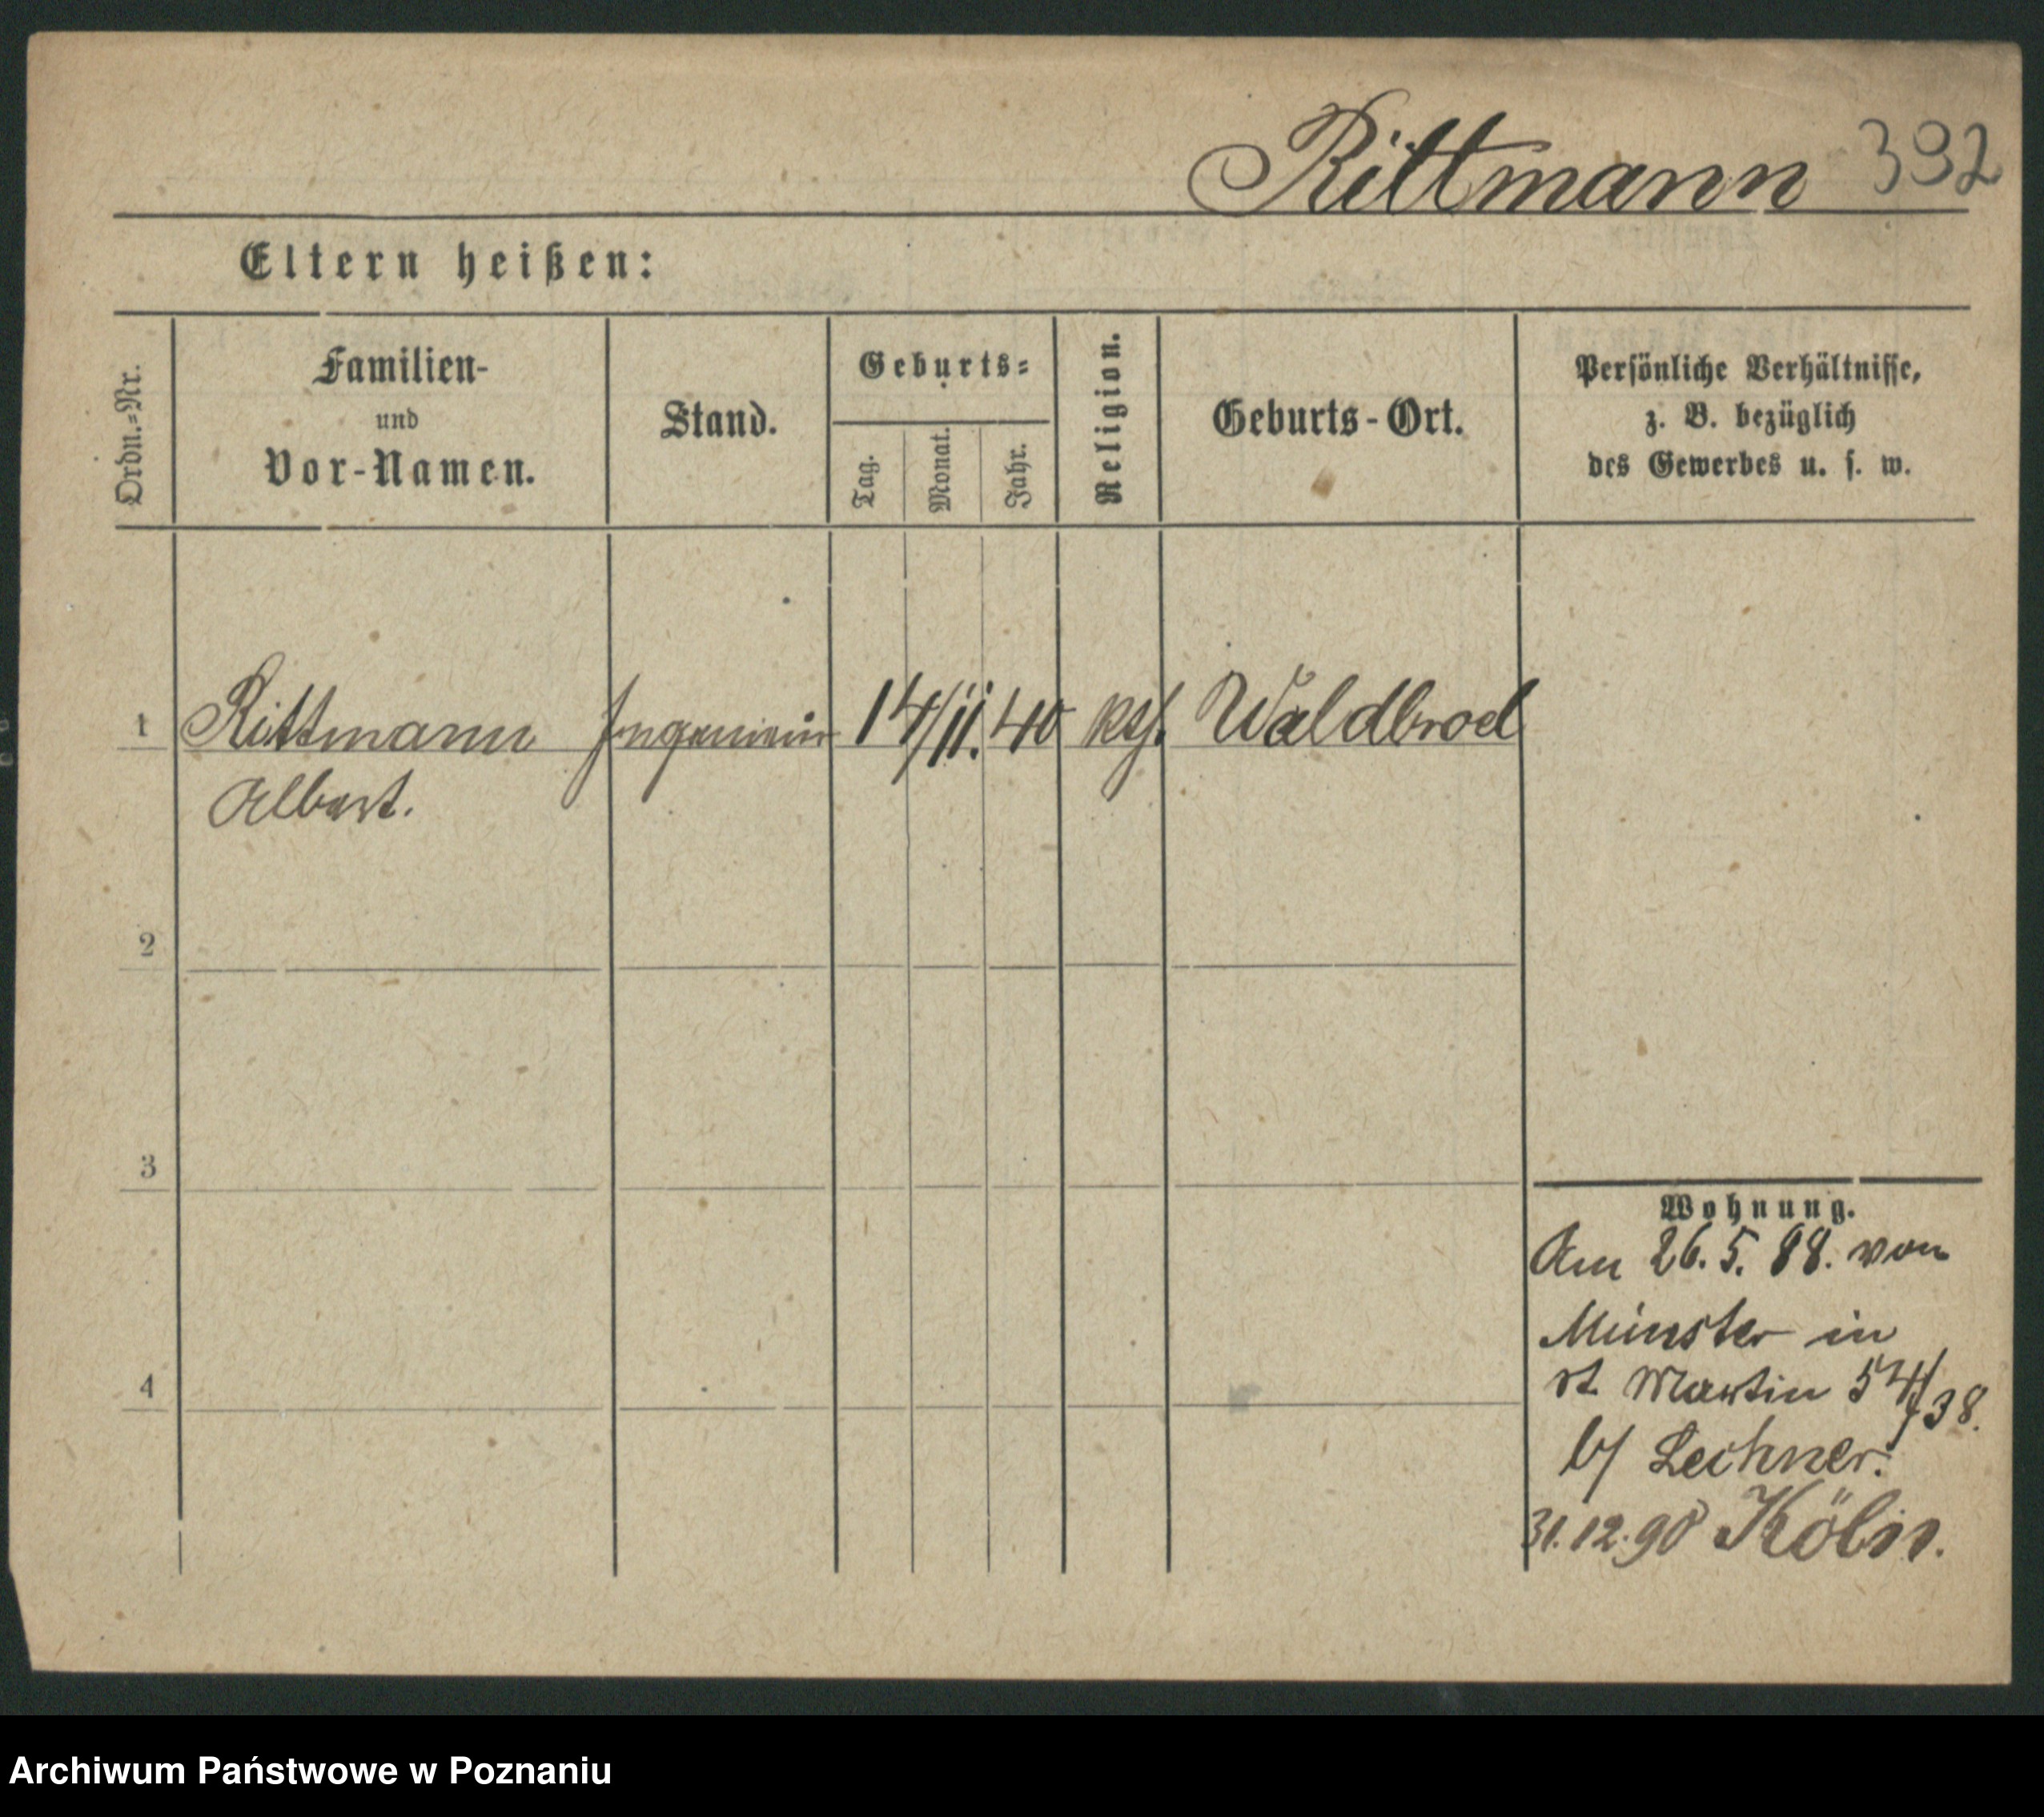 Rittmann 392
Eltern heißen:
Ordn.-Nr.
Familien-
und
Vor-Namen.
Stand.
Geburts-
Tag.
Monat.
Jahr.
Religion.
Geburts-Ort.
Persönliche Verhältnisse,
z. B. bezüglich
des Gewerbes u. s. w.
1 Rittmann Ingenieur 14/11. 40 kth. Waldbroel
Albert.
2
3
4
Wohnung.
Am 26. 5. 88. von
Münster in
St. Martin 54/38.
b/ Lechner.
31.12.90 Köln.
Archiwum Państwowe w Poznaniu